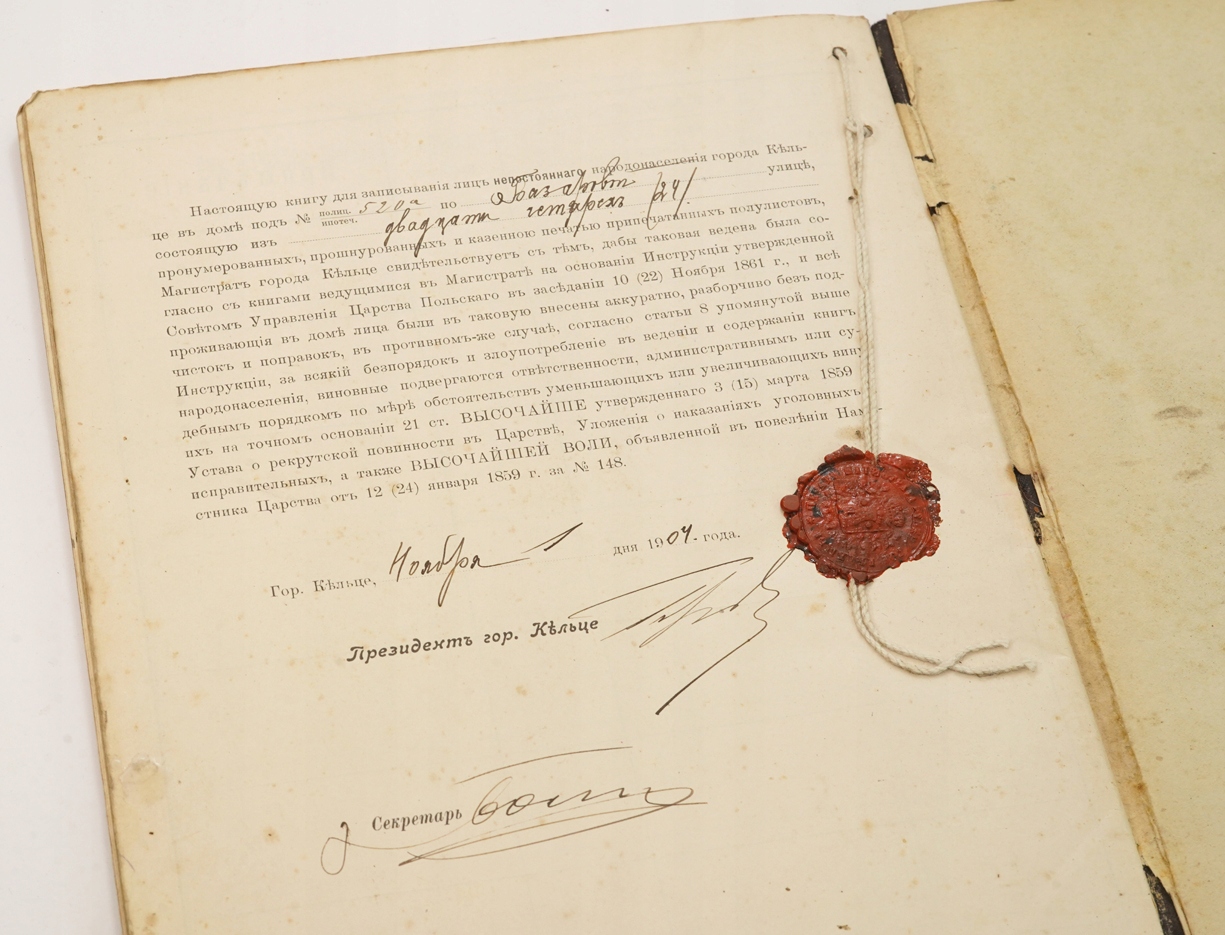 Настоящую книгу для записыванія лицъ непостояннаго народонаселенія города Кѣль-
це въ домѣ подъ № полиц. ипотеч. 520а по Базаровой улицѣ,
состоящую изъ двадцати четырехъ /24/
пронумерованныхъ, прошнурованныхъ и казенною печатью припечатанныхъ полулистовъ,
Магистратъ города Кѣльце свидѣтельствуетъ съ тѣмъ, дабы таковая ведена была со-
гласно съ книгами ведущимися въ Магистратѣ на основаніи Инструкціи утвержденной
Совѣтомъ Управленія Царства Польскаго въ засѣданіи 10 (22) Ноября 1861 г., и всѣ
проживающія въ домѣ лица были въ таковую внесены аккуратно, разборчиво безъ под-
чистокъ и поправокъ, въ противномъ-же случаѣ, согласно статьи 8 упомянутой выше
Инструкціи, за всякій безпорядокъ и злоупотребленіе въ веденіи и содержаніи книгъ
народонаселенія, виновные подвергаются отвѣтственности, административнымъ или су-
дебнымъ порядкомъ по мѣрѣ обстоятельствъ уменьшающихъ или увеличивающихъ вину
ихъ на точномъ основаніи 21 ст. ВЫСОЧАЙШЕ утвержденнаго 3 (15) марта 1859
Устава о рекрутской повинности въ Царствѣ, Уложенія о наказаніяхъ уголовныхъ
исправительныхъ, а также ВЫСОЧАЙШЕЙ ВОЛИ, объявленной въ повелѣніи Нам
стника Царства отъ 12 (24) января 1859 г. за № 148.
Гор. Кѣльце, Ноября 1 дня 1904. года.
Президентъ гор. Кѣльце
Секретарь